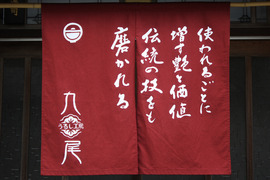 使われるごとに
増す艶と価値
伝統の技をも
磨かれる
うるし工房
九尾